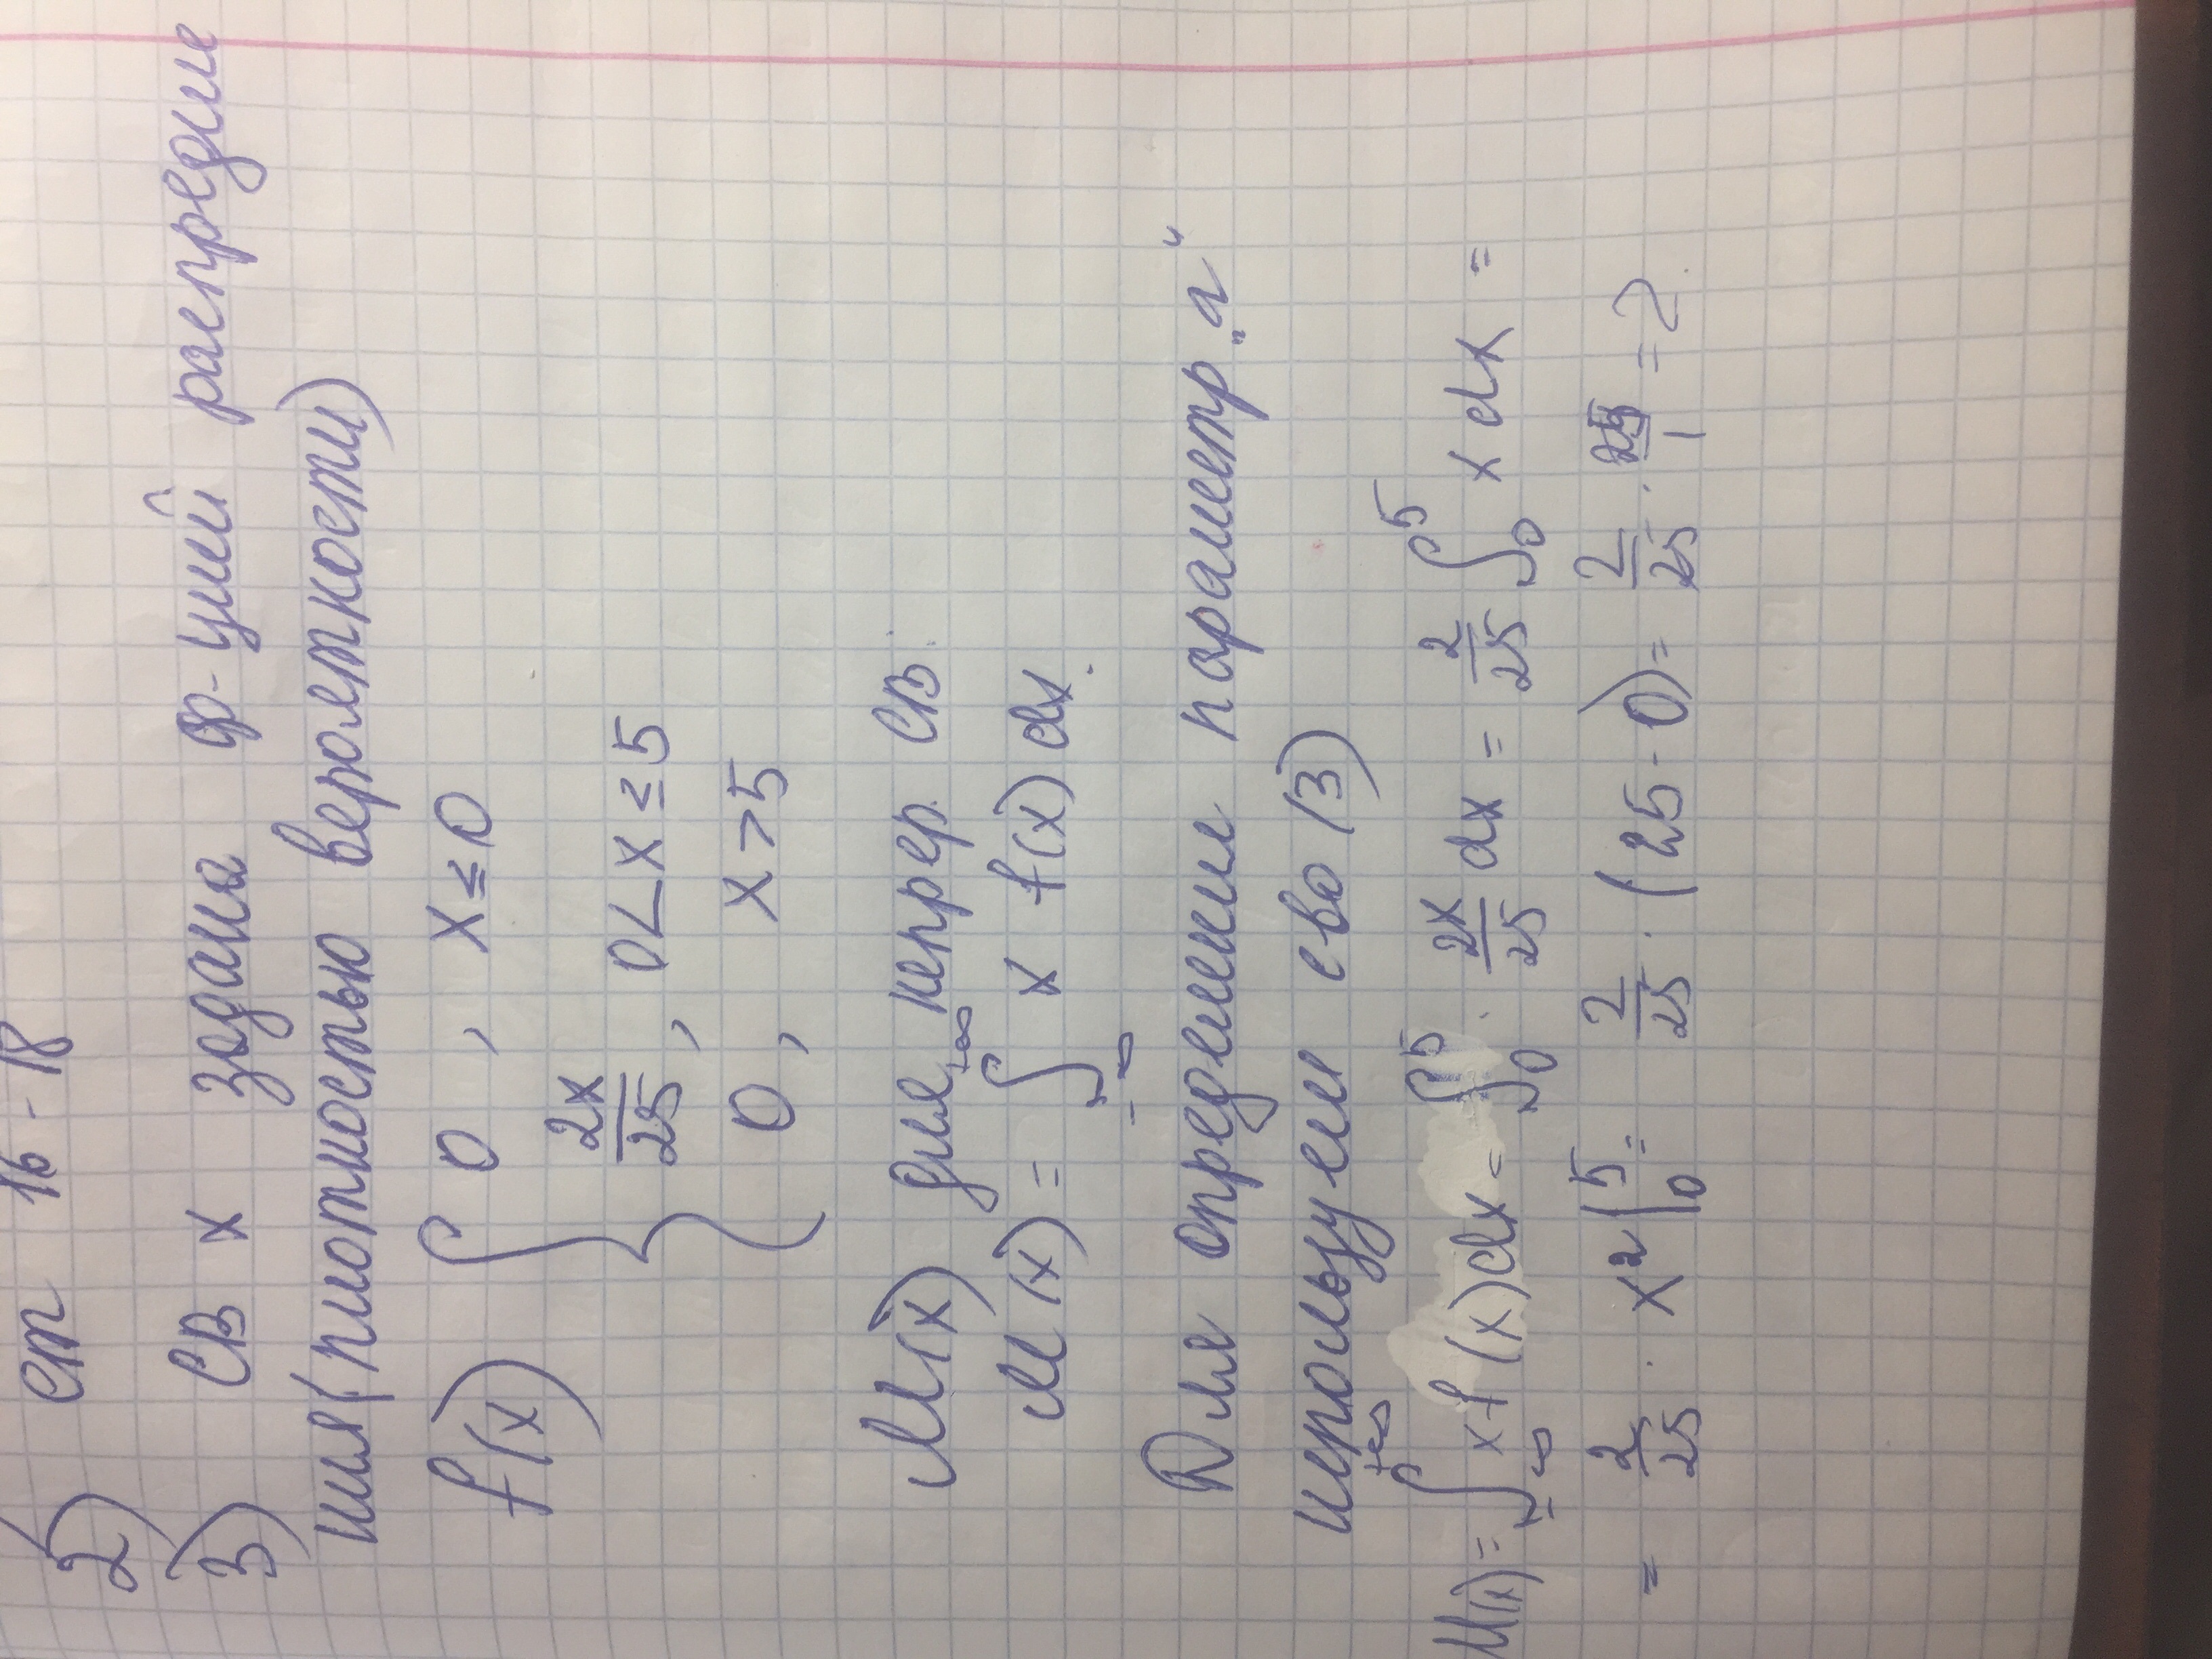 2) ст 16-18
3) СВ х задана ф-цией распределе
ния (плотностью вероятности)
f(x) { 0, x ≤ 0
2x/25, 0 < x ≤ 5
0, x > 5
M(x) для непрер. СВ:
M(x) = ∫_{-∞}^{+∞} x f(x) dx.
Для определения параметр „а“
используем сво (3)
M(x) = ∫_{-∞}^{+∞} x f(x) dx = ∫_0^5 · 2x/25 dx = 2/25 ∫_0^5 x dx =
= 2/25 · x² |_0^5 = 2/25 · (25 - 0) = 2/25 · 25/1 = 2